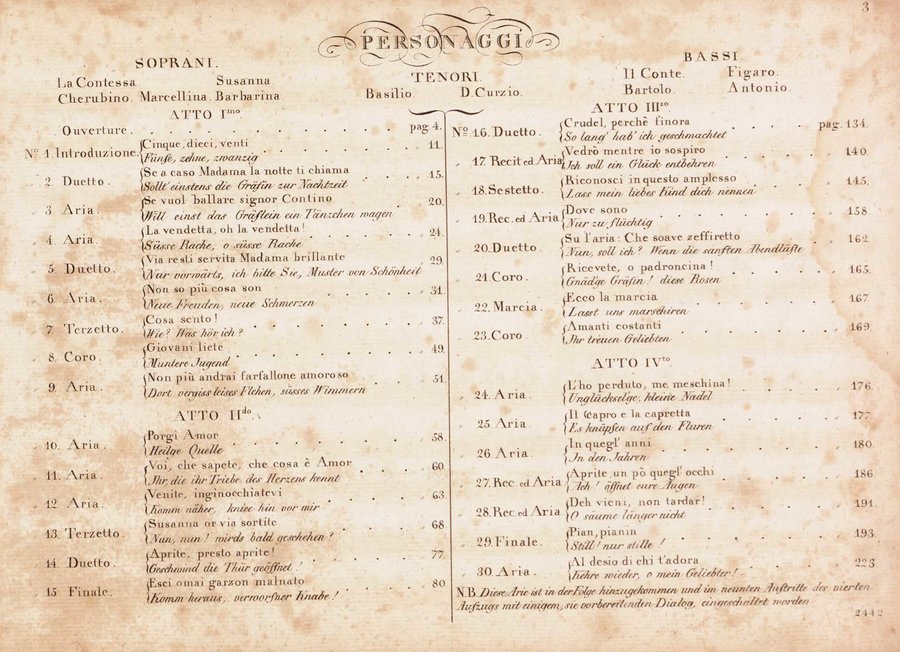 3
PERSONAGGI
SOPRANI.
La Contessa. Susanna.
Cherubino. Marcellina. Barbarina.
TENORI.
Basilio. D. Curzio.
BASSI.
Il Conte. Figaro.
Bartolo. Antonio.
ATTO I.mo
Ouverture. pag. 4.
No. 1. Introduzione. Cinque, dieci, venti 11.
Fünfe, zehne, zwanzig
2. Duetto. Se a caso Madama la notte ti chiama 15.
Sollt' einstens die Gräfin zur Nachtzeit
3. Aria. Se vuol ballare signor Contino 20.
Will einst das Gräflein ein Tänzchen wagen
4. Aria. La vendetta, oh la vendetta! 24.
Süsse Rache, o süsse Rache
5. Duetto. Via resti servita Madama brillante 29.
Nur vorwärts, ich bitte Sie, Muster von Schönheit
6 Aria. Non so più cosa son 31.
Neue Freuden, neue Schmerzen
7 Terzetto. Cosa sento! 37.
Wie? Was hör ich?
8. Coro. Giovani liete 49.
Muntere Jugend
9. Aria. Non più andrai farfallone amoroso 51.
Dort vergiss leises Flehen, süsses Wimmern
ATTO II.do
10. Aria. Porgi Amor 58.
Heilge Quelle
11. Aria. Voi, che sapete, che cosa è Amor 60.
Ihr, die ihr Triebe des Herzens kennt
12. Aria. Venite, inginocchiatevi 63.
Komm näher, kniee hin vor mir
13. Terzetto. Susanna or via sortite 68
Nun, nun! wirds bald geschehen?
14. Duetto. Aprite, presto aprite! 77.
Geschwind die Thür geöffnet!
15 Finale. Esci omai garzon malnato 80
Komm heraus, verworfner Knabe!
ATTO III.zo
No. 16. Duetto. Crudel, perchè finora pag. 134.
So lang' hab' ich geschmachtet
17 Recit ed Aria Vedrò mentre io sospiro 140.
Ich soll ein Glück entbehren
18. Sestetto. Riconosci in questo amplesso 145.
Lass mein liebes Kind dich nennen
19. Rec. ed Aria Dove sono 158.
Nur zu flüchtig
20. Duetto. Su l'aria: Che soave zeffiretto 162
Nun, soll ich? Wenn die sanften Abendlüfte
21 Coro. Ricevete, o padroncina! 165.
Gnäd'ge Gräfin! diese Rosen
22. Marcia. Ecco la marcia 167.
Lasst uns marschiren
23. Coro. Amanti costanti 169.
Ihr treuen Geliebten
ATTO IV.to
24. Aria. L'ho perduto, me meschina! 176.
Unglücksel'ge, kleine Nadel
25. Aria. Il capro e la capretta 177.
Es knüpfen auf den Fluren
26. Aria. In quegl' anni 180.
In den Jahren
27. Rec. ed Aria Aprite un pò quegl' occhi 186.
Ach! öffnet eure Augen
28. Rec ed Aria Deh vieni, non tardar! 191.
O säume länger nicht
29. Finale. Pian, pianin 193.
Still! nur stille!
30. Aria. Al desio di chi t'adora 223
Kehre wieder, o mein Geliebter!
NB. Diese Arie ist in der Folge hinzugekommen und im neunten Auftritte des vierten
Aufzugs mit einigem, sie vorbereitenden Dialog, eingeschaltet worden
2442